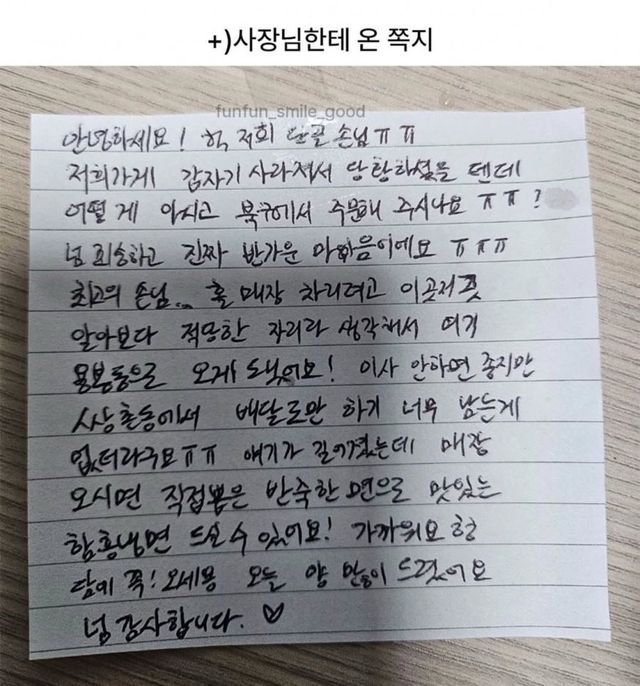 +)사장님한테 온 쪽지
funfun_smile_good
안녕하세요! 헉 저희 단골 손님ㅠㅠ
저희가게 갑자기 사라져서 당황하셨을 텐데
어떻게 아시고 북구에서 주문해 주시나요 ㅠㅠ?
넘 죄송하고 진짜 반가운 마음이에요 ㅠㅠㅠ
최고의 손님.. 홀 매장 차리려고 이곳저곳
알아보다 적당한 자리라 생각해서 여기
용봉동으로 오게 됐어요! 이사 안하면 좋지만
쌍촌동에서 배달로만 하기 너무 남는게
없더라구요ㅠㅠ 얘기가 길어졌는데 매장
오시면 직접뽑은 반죽한 면으로 맛있는
함흥냉면 드실 수 있어요! 가까워요 헝
담에 꼭! 오세용 오늘 양 많이 드렸어요
넘 감사합니다. ♡